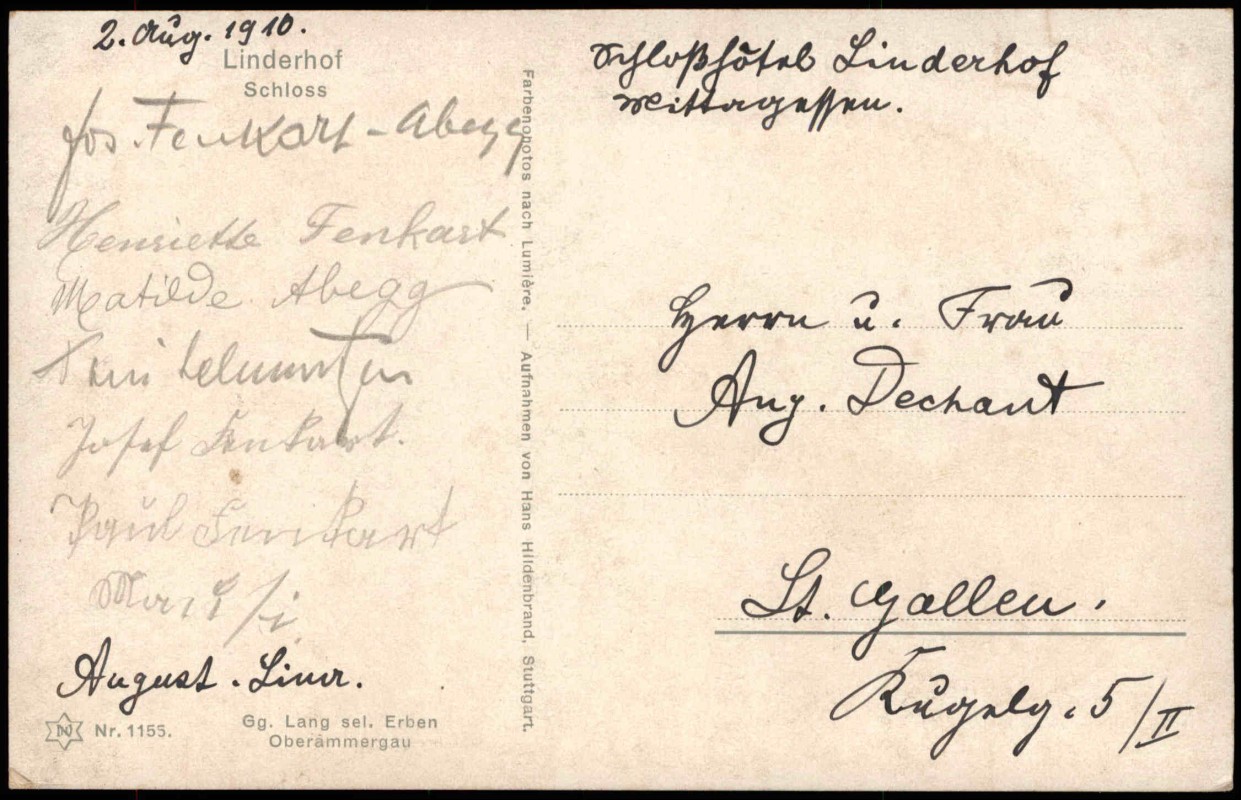 2. Aug. 1910.
Linderhof
Schloss
Jos. Fenkart-Abegg
Henriette Fenkart
Matilde Abegg
Josef Fenkart.
Paul Fenkart
August. Lina.
Nr. 1155.
Gg. Lang sel. Erben
Oberammergau
Farbenphotos nach Lumière. — Aufnahmen von Hans Hildenbrand, Stuttgart.
Schloßhôtel Linderhof
Mittagessen.
Herrn u. Frau
Aug. Dechant
St. Gallen.
Kugelg. 5/II